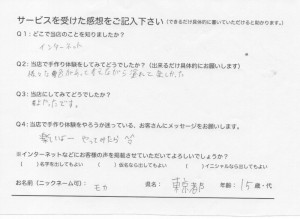 サービスを受けた感想をご記入下さい(できるだけ具体的に書いていただけると助かります。)
Q1: どこで当店のことを知りましたか?
インターネット
Q2: 当店で手作り体験をしてみてどうでしたか? (出来るだけ具体的にお願いします)
Q3: 当店にしてみてどうでしたか?
よかったです。
Q4: 当店で手作り体験をやろうか迷っている、お客さんにメッセージをお願いします。
やってみたら
※インターネットなどにお客様の声を掲載させていただいてよろしいでしょうか?
( )名字を出してもよい ( )仮名なら出してもよい ( )イニシャルなら出してもよい
お名前(ニックネーム可): モカ 県名: 東京都 年齢: 15歳・代